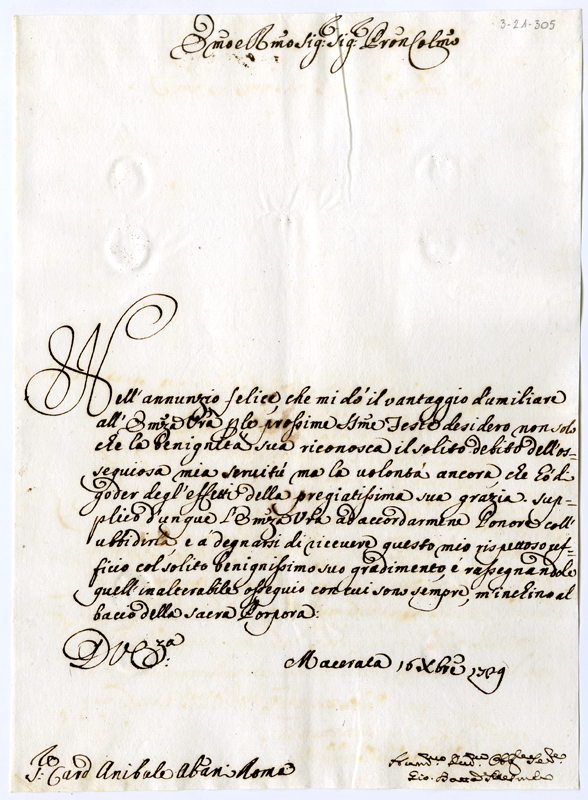 3-21-305
Emo e Rmo Sig: Sig: Pron Colmo
Nell'annunzio felice, che mi dò il vantaggio d'umiliare
all'Emza Vra p le prossime SSme Feste desidero non solo
che la benignità sua riconosca il solito debito dell'os=
sequiosa mia servitù ma la volontà ancora, che hò di
goder degl'effetti della pregiatissima sua grazia. Sup=
plico dunque l'Emza Vra ad accordarmene l'onore coll'
ubbidirla, e a degnarsi di ricevere questo mio rispettoso uf=
ficio col solito benignissimo suo gradimento, e rassegnandole
quell'inalterabile ossequio con cui sono sempre, m'inchino al
bacio della sacra Porpora:
D V Emza:
Macerata 16 Xbre 1729
S: Card Anibale Albani Roma